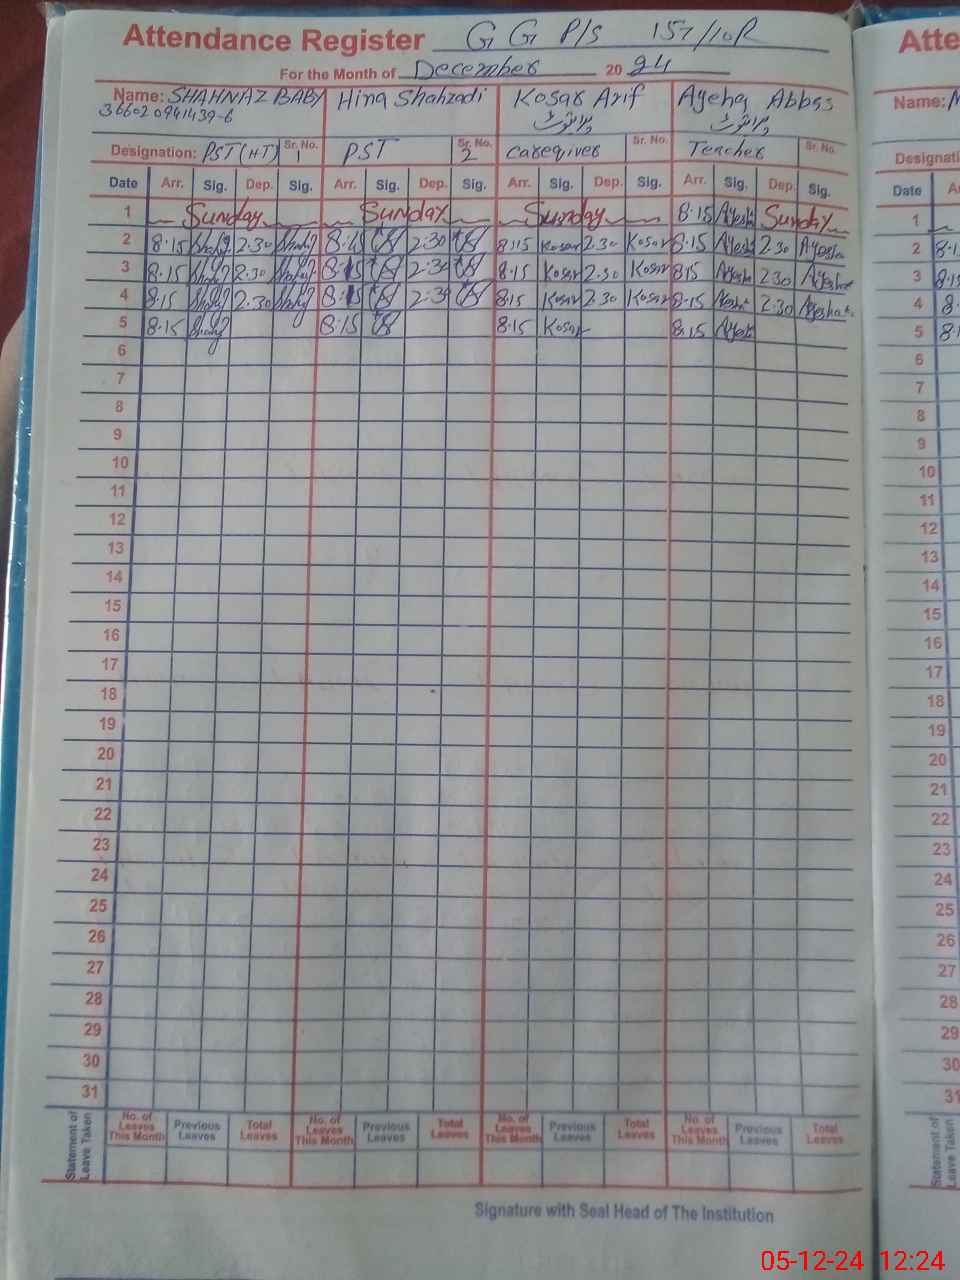 Attendance Register G G P/S 157/10R
For the Month of December 2024
Name: SHAHNAZ BABY Hina Shahzadi Kosar Arif Ayeha Abbas
366020941439-6
Designation: PST (H-T) Sr. No. 1 PST Sr. No. 2 Caregiver Sr. No. Teacher Sr. No.
Date Arr. Sig. Dep. Sig. Arr. Sig. Dep. Sig. Arr. Sig. Dep. Sig. Arr. Sig. Dep. Sig.
1 Sunday Sunday Sunday 8.15 Ayesha Sunday
2 8.15 2.30 8.15 2:30 8:15 Kosar 2.30 Kosar 8.15 Ayesha 2.30 Ayesha
3 8.15 2.30 8.15 2:30 8.15 Kosar 2.30 Kosar 8.15 Ayesha 2.30 Ayesha
4 8.15 2.30 8.15 2:30 8.15 Kosar 2.30 Kosar 8.15 Ayesha 2.30 Ayesha
5 8.15 8.15 8.15 Kosar 8.15 Ayesha
6
7
8
9
10
11
12
13
14
15
16
17
18
19
20
21
22
23
24
25
26
27
28
29
30
31
Statement of Leave Taken
No. of Leaves This Month Previous Leaves Total Leaves No. of Leaves This Month Previous Leaves Total Leaves No. of Leaves This Month Previous Leaves Total Leaves No. of Leaves This Month Previous Leaves Total Leaves
Signature with Seal Head of The Institution
Atte
Name:
Designati
Date
1
2
3
4
5
6
7
8
9
10
11
12
13
14
15
16
17
18
19
20
21
22
23
24
25
26
27
28
29
30
31
Statement of Leave Taken
05-12-24 12:24